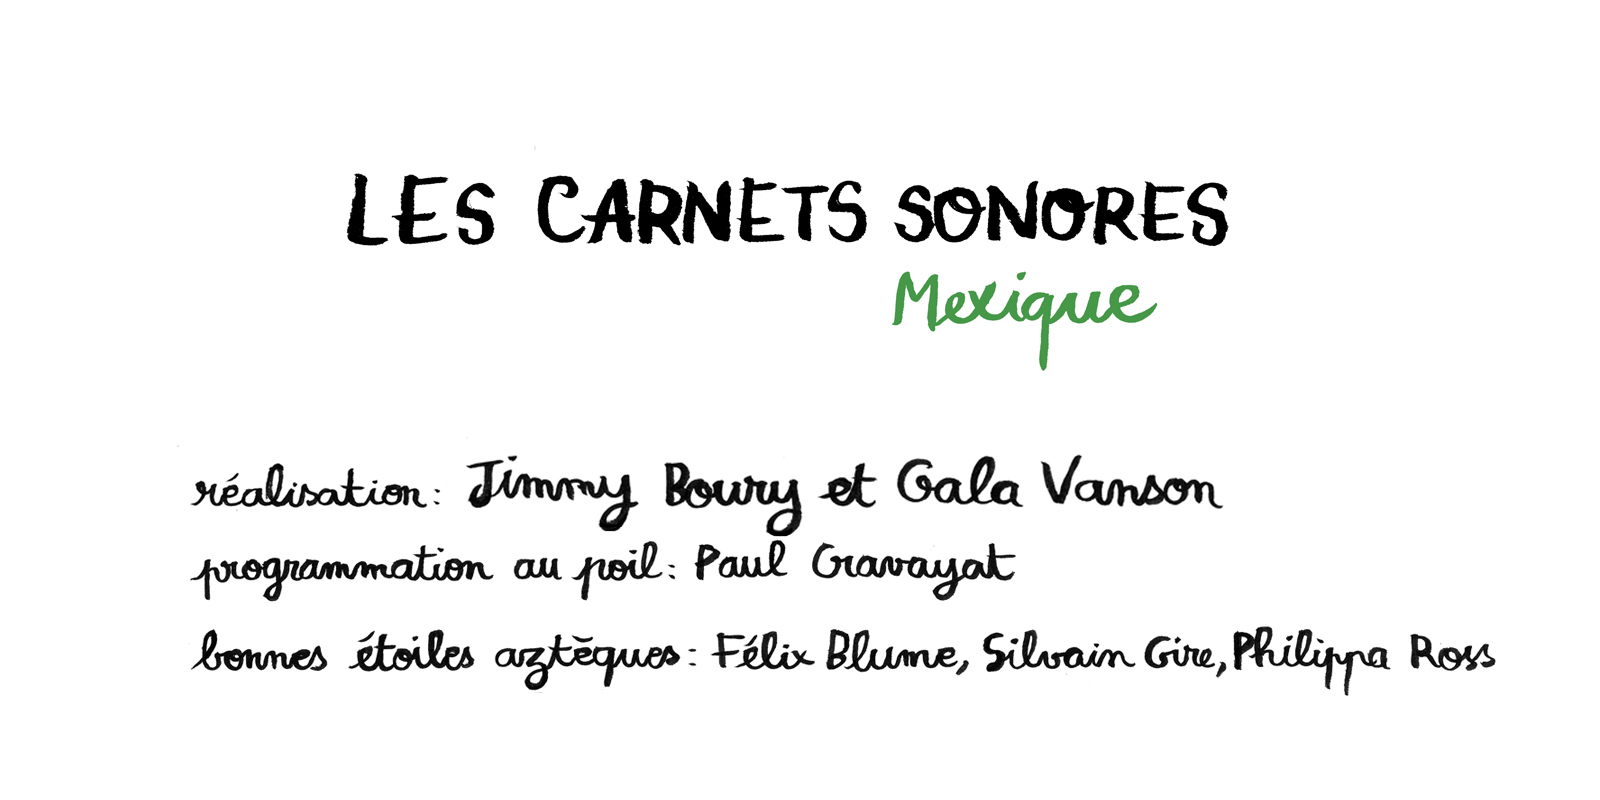 LES CARNETS SONORES
Mexique
réalisation: Jimmy Boury et Gala Vanson
programmation au poil: Paul Gravayat
bonnes étoiles aztèques: Félix Blume, Silvain Gire, Philippa Ross